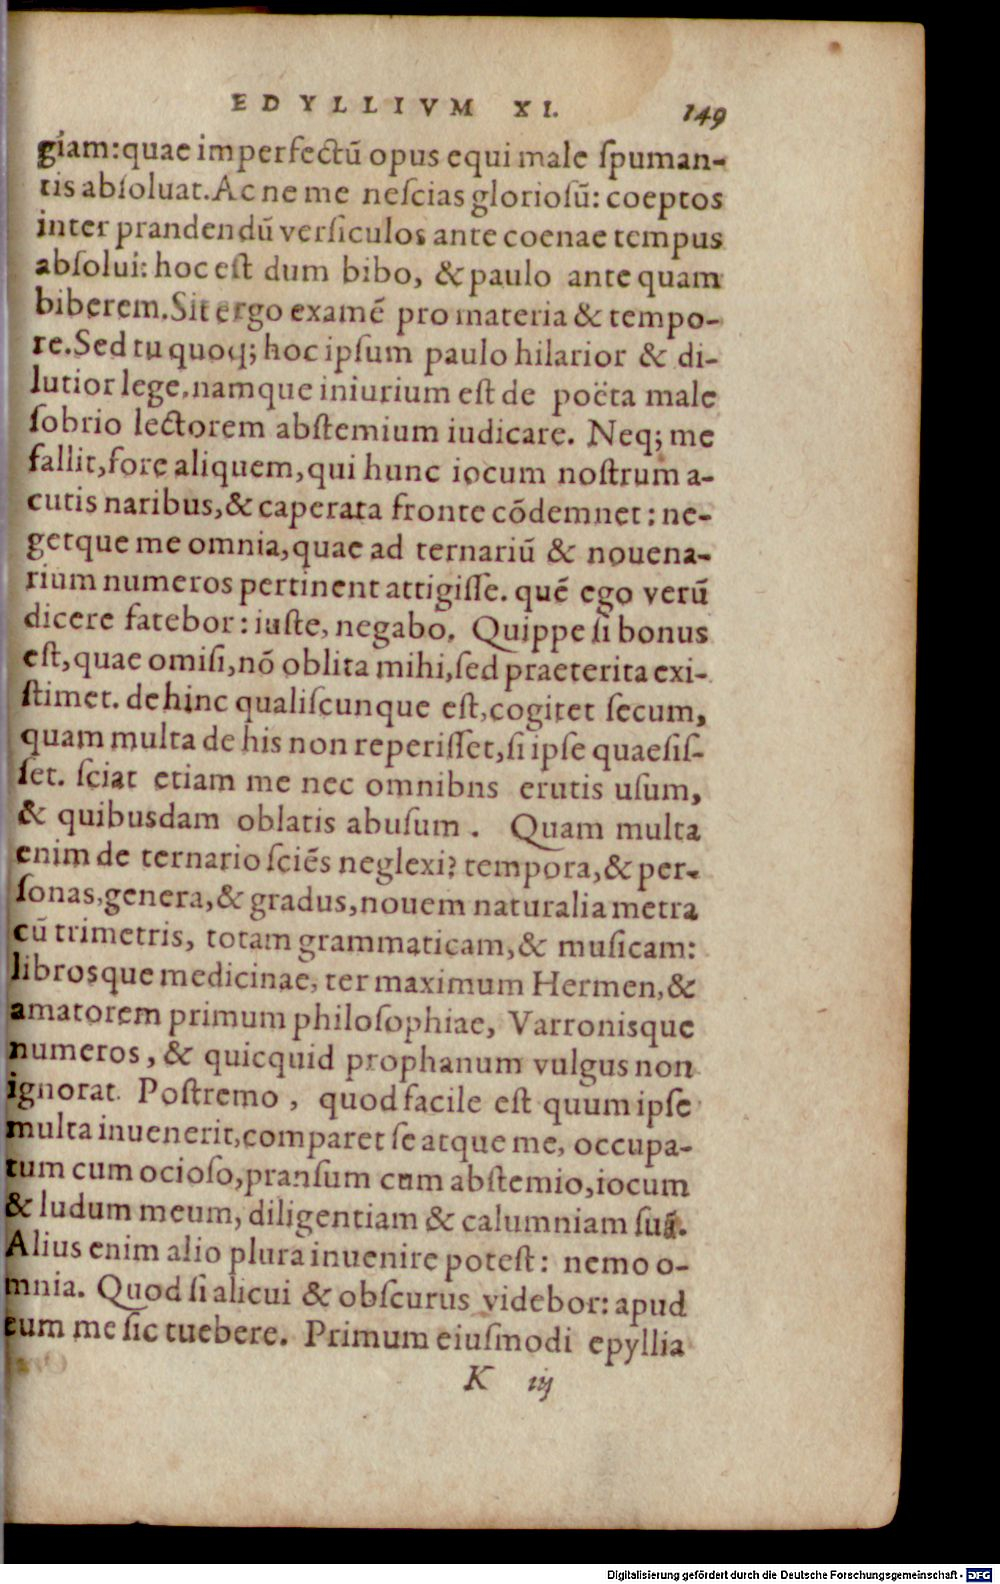 EDYLLIVM XI. 149
giam:quae imperfectū opus equi male ſpuman-
tis abſoluat.Ac ne me neſcias glorioſū: coeptos
inter prandendū verſiculos ante coenae tempus
abſolui: hoc eſt dum bibo, & paulo ante quam
biberem.Sit ergo examē pro materia & tempo-
re.Sed tu quoq; hoc ipſum paulo hilarior & di-
lutior lege,namque iniurium eſt de poëta male
ſobrio lectorem abſtemium iudicare. Neq; me
fallit,fore aliquem,qui hunc iocum noſtrum a-
cutis naribus,& caperata fronte cōdemnet: ne-
getque me omnia,quae ad ternariū & nouena-
rium numeros pertinent attigiſſe. quē ego verū
dicere fatebor: iuſte, negabo. Quippe ſi bonus
eſt,quae omiſi,nō oblita mihi,ſed praeterita exi-
ſtimet. dehinc qualiſcunque eſt,cogitet ſecum,
quam multa de his non reperiſſet,ſi ipſe quaeſiſ-
ſet. ſciat etiam me nec omnibns erutis uſum,
& quibusdam oblatis abuſum. Quam multa
enim de ternario ſciēs neglexi? tempora,& per-
ſonas,genera,& gradus,nouem naturalia metra
cū trimetris, totam grammaticam,& muſicam:
librosque medicinae, ter maximum Hermen,&
amatorem primum philoſophiae, Varronisque
numeros, & quicquid prophanum vulgus non
ignorat. Poſtremo, quod facile eſt quum ipſe
multa inuenerit,comparet ſe atque me, occupa-
tum cum ocioſo,pranſum cum abſtemio,iocum
& ludum meum, diligentiam & calumniam ſuā.
Alius enim alio plura inuenire poteſt: nemo o-
mnia. Quod ſi alicui & obſcurus videbor: apud
eum me ſic tuebere. Primum eiuſmodi epyllia
K iij
Digitalisierung gefördert durch die Deutsche Forschungsgemeinschaft - DFG